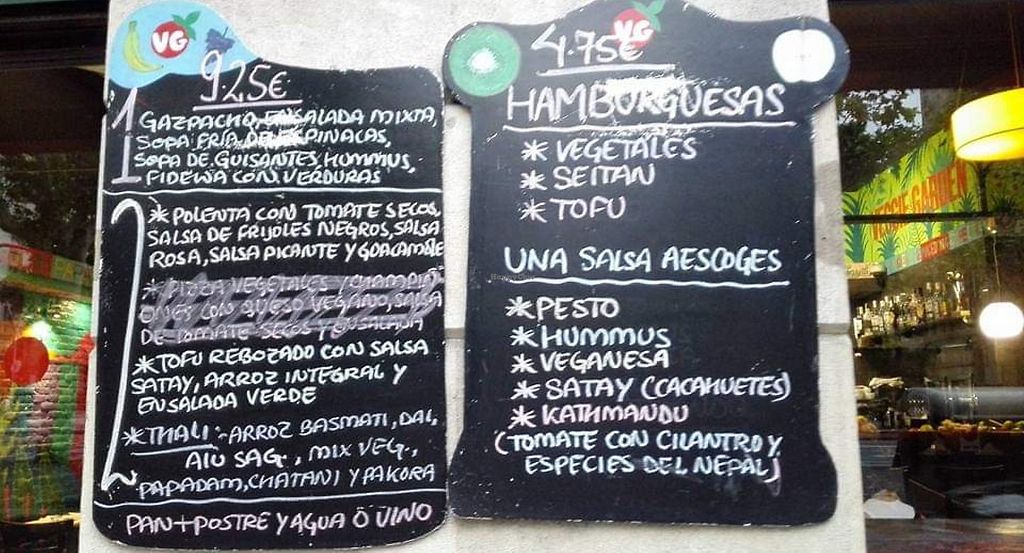 VG
9'25€
1 GAZPACHO, ENSALADA MIXTA,
SOPA FRIA DE ESPINACAS,
SOPA DE GUISANTES, HUMMUS,
FIDEWA CON VERDURAS
2 * POLENTA CON TOMATE SECOS,
SALSA DE FRIJOLES NEGROS, SALSA
ROSA, SALSA PICANTE Y GUACAMOLE
* PIZZA VEGETALES Y CHAMPIÑ
ONES CON QUESO VEGANO, SALSA
DE TOMATE SECOS Y ENSALADA
* TOFU REBOZADO CON SALSA
SATAY, ARROZ INTEGRAL Y
ENSALADA VERDE
* THALI:- ARROZ BASMATI, DAL,
ALU SAG, MIX VEG,
PAPADAM, CHATANI Y PAKORA
PAN + POSTRE Y AGUA O VINO
VG
4.75€
HAMBURGUESAS
* VEGETALES
* SEITAN
* TOFU
UNA SALSA AESCOGES
* PESTO
* HUMMUS
* VEGANESA
* SATAY (CACAHUETES)
* KATHMANDU
(TOMATE CON CILANTRO Y
ESPECIES DEL NEPAL)
VEGGIE GARDEN